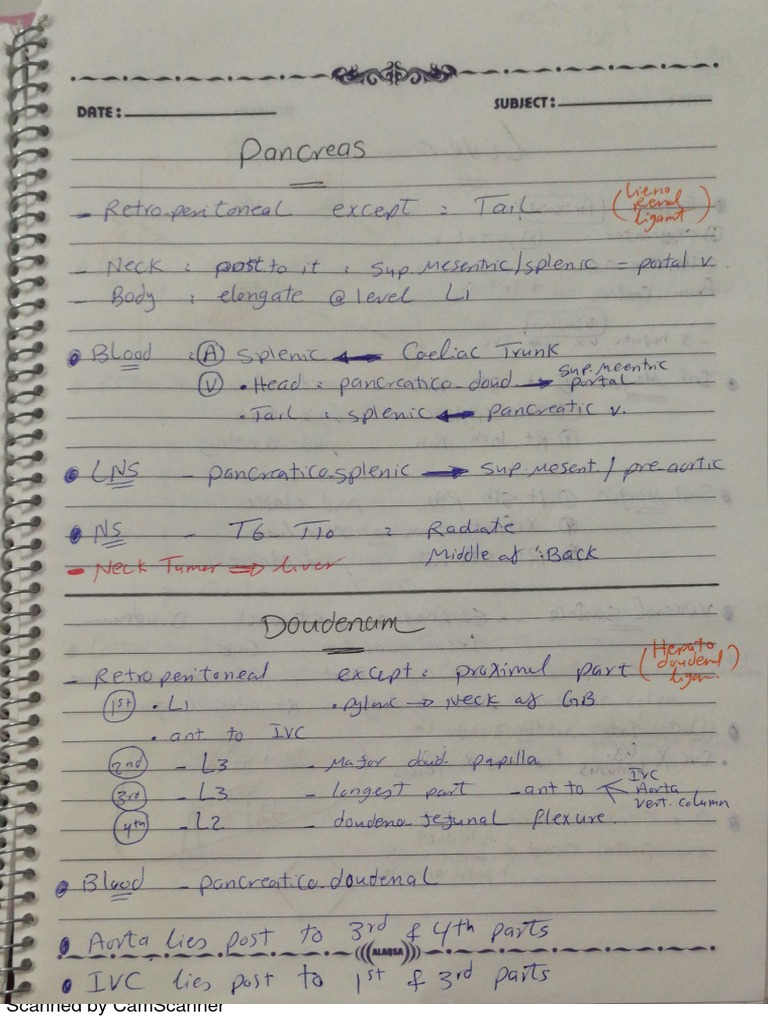 DATE:
SUBJECT:
Pancreas
- Retroperitoneal except : Tail (Lieno Renal ligamt)
- Neck : post to it : Sup. Mesentric/splenic = portal v.
- Body : elongate @ level L1
• Blood : (A) Splenic ↔ Coeliac Trunk
(V) • Head : pancreatico-doud → Sup. meentric portal
• Tail : splenic ↔ pancreatic v.
• LNS - pancreatico-splenic → Sup Mesent / pre-aortic
• NS - T6 - T10 : Radiate
Middle of : Back
- Neck Tumer ⇒ liver
Doudenum
- Retroperitoneal except : proximal part (Hepato doudenl ligam.)
(1st) • L1 • pyloric → Neck of GB
• ant to IVC
(2nd) - L3 - Major doud. papilla
(3rd) - L3 - longest part - ant to IVC Aorta vert. column
(4th) - L2 - doudeno-jejunal flexure.
• Blood - pancreatico-doudenal
• Aorta lies post to 3rd & 4th parts
ALAQSA
• IVC lies post to 1st & 3rd parts
Scanned by CamScanner